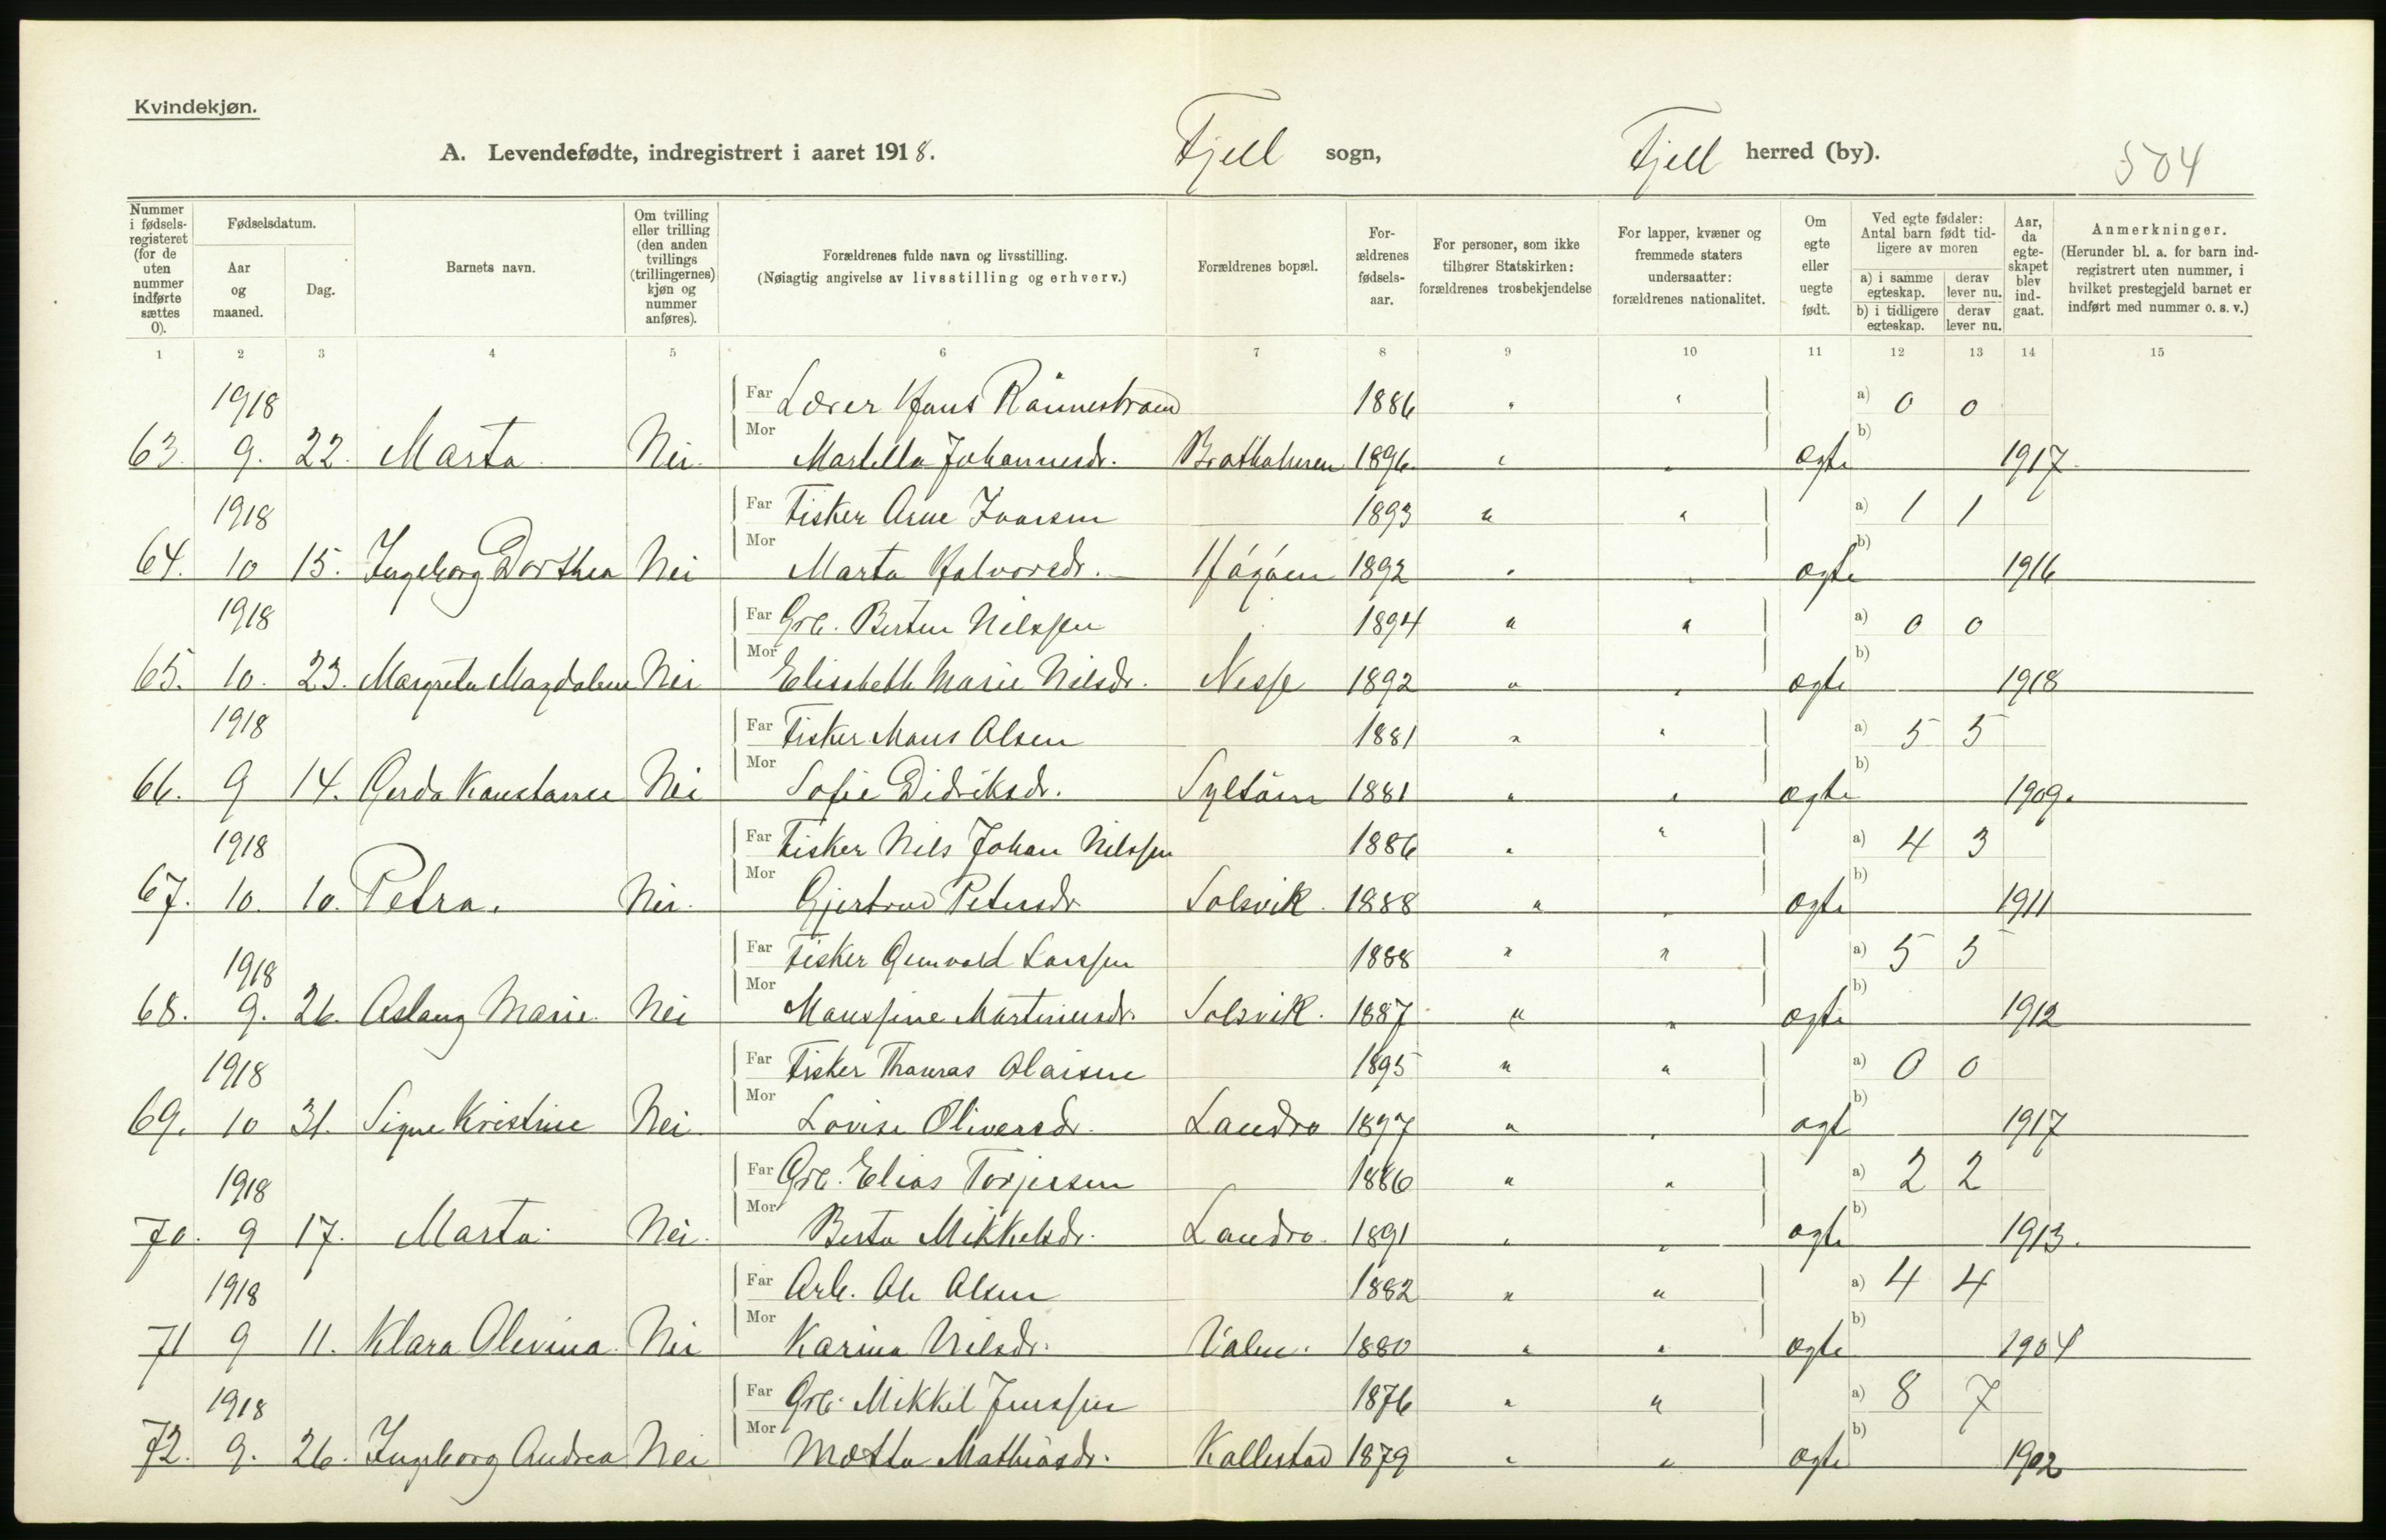 Kvindekjøn.
A. Levendefødte, indregistrert i aaret 1918. Fjell sogn, Fjell herred (by). 504
Nummer i fødsels-registeret (for de uten nummer indførte sættes 0).
Fødselsdatum.
Aar og maaned.
Dag.
Barnets navn.
Om tvilling eller trilling (den anden tvillings (trillingernes) kjøn og nummer anføres).
Forældrenes fulde navn og livsstilling.
(Nøiagtig angivelse av livsstilling og erhverv.)
Forældrenes bopæl.
For-ældrenes fødsels-aar.
For personer, som ikke tilhører Statskirken: forældrenes trosbekjendelse
For lapper, kvæner og fremmede staters undersaatter: forældrenes nationalitet.
Om egte eller uegte født.
Ved egte fødsler: Antal barn født tid-ligere av moren
a) i samme egteskap. derav lever nu.
b) i tidligere egteskap. derav lever nu.
Aar, da egte-skapet blev ind-gaat.
Anmerkninger.
(Herunder bl. a. for barn ind-registrert uten nummer, i hvilket prestegjeld barnet er indført med nummer o. s. v.)
1 2 3 4 5 6 7 8 9 10 11 12 13 14 15
1918 Far Lærer Hans Rånnestraand 1886 " " a) 0 0
63. 9. 22. Marta. Nei. Mor Martella Johannesdr. Brathalmen 1896 " " b) ægte 1917.
1918 Far Fisker Arne Ivarsen 1893 " " a) 1 1
64. 10 15. Ingeborg Dorthea Nei Mor Marta Halvorsdr. Hågåen 1892 " " b) ægte 1916
1918 Far Grb. Berten Nilssen 1894 " " a) 0 0
65. 10. 23. Margreta Magdalena Nei Mor Elisabeth Marie Nilsdr. Nesse 1892 " " b) ægte 1918
1918 Far Fisker Mons Olsen 1881 " " a) 5 5
66. 9 14. Gerda Konstanse Nei Mor Sofie Didriksdr. Syltöin 1881 " " b) ægte 1909.
1918 Far Fisker Nils Johan Nilssen 1886 " " a) 4 3
67. 10. 10. Petra. Nei. Mor Gjertrud Petersdr. Solsvik. 1888 " " b) ægte 1911
1918 Far Fisker Gunvald Larssen 1888 " " a) 5 5
68. 9. 26. Aslaug Marie. Nei Mor Monssine Martinusdr. Solsvik. 1887 " " b) ægte 1912
1918 Far Fisker Thomas Olaisen 1895 " " a) 0 0
69. 10 31. Signe Kristine Nei Mor Lovise Oliversdr. Landro 1897 " " b) ægt 1917
1918 Far Grb. Elias Torjersen 1886 " " a) 2 2
70. 9 17. Marta. Nei. Mor Berta Mikkelsdr. Landro. 1891 " " b) ægte 1913.
1918 Far Arb. Ole Olsen 1882 " " a) 4 4
71 9 11. Klara Olevina. Nei Mor Karina Nilsdr. Valen. 1880 " " b) ægte 1904
1918 Far Grb. Mikkel Jenssen 1876 " " a) 8 7
72. 9. 26. Ingeborg Andrea Nei Mor Metta Mathiasdr. Kallestad 1879 " " b) ægte 1902